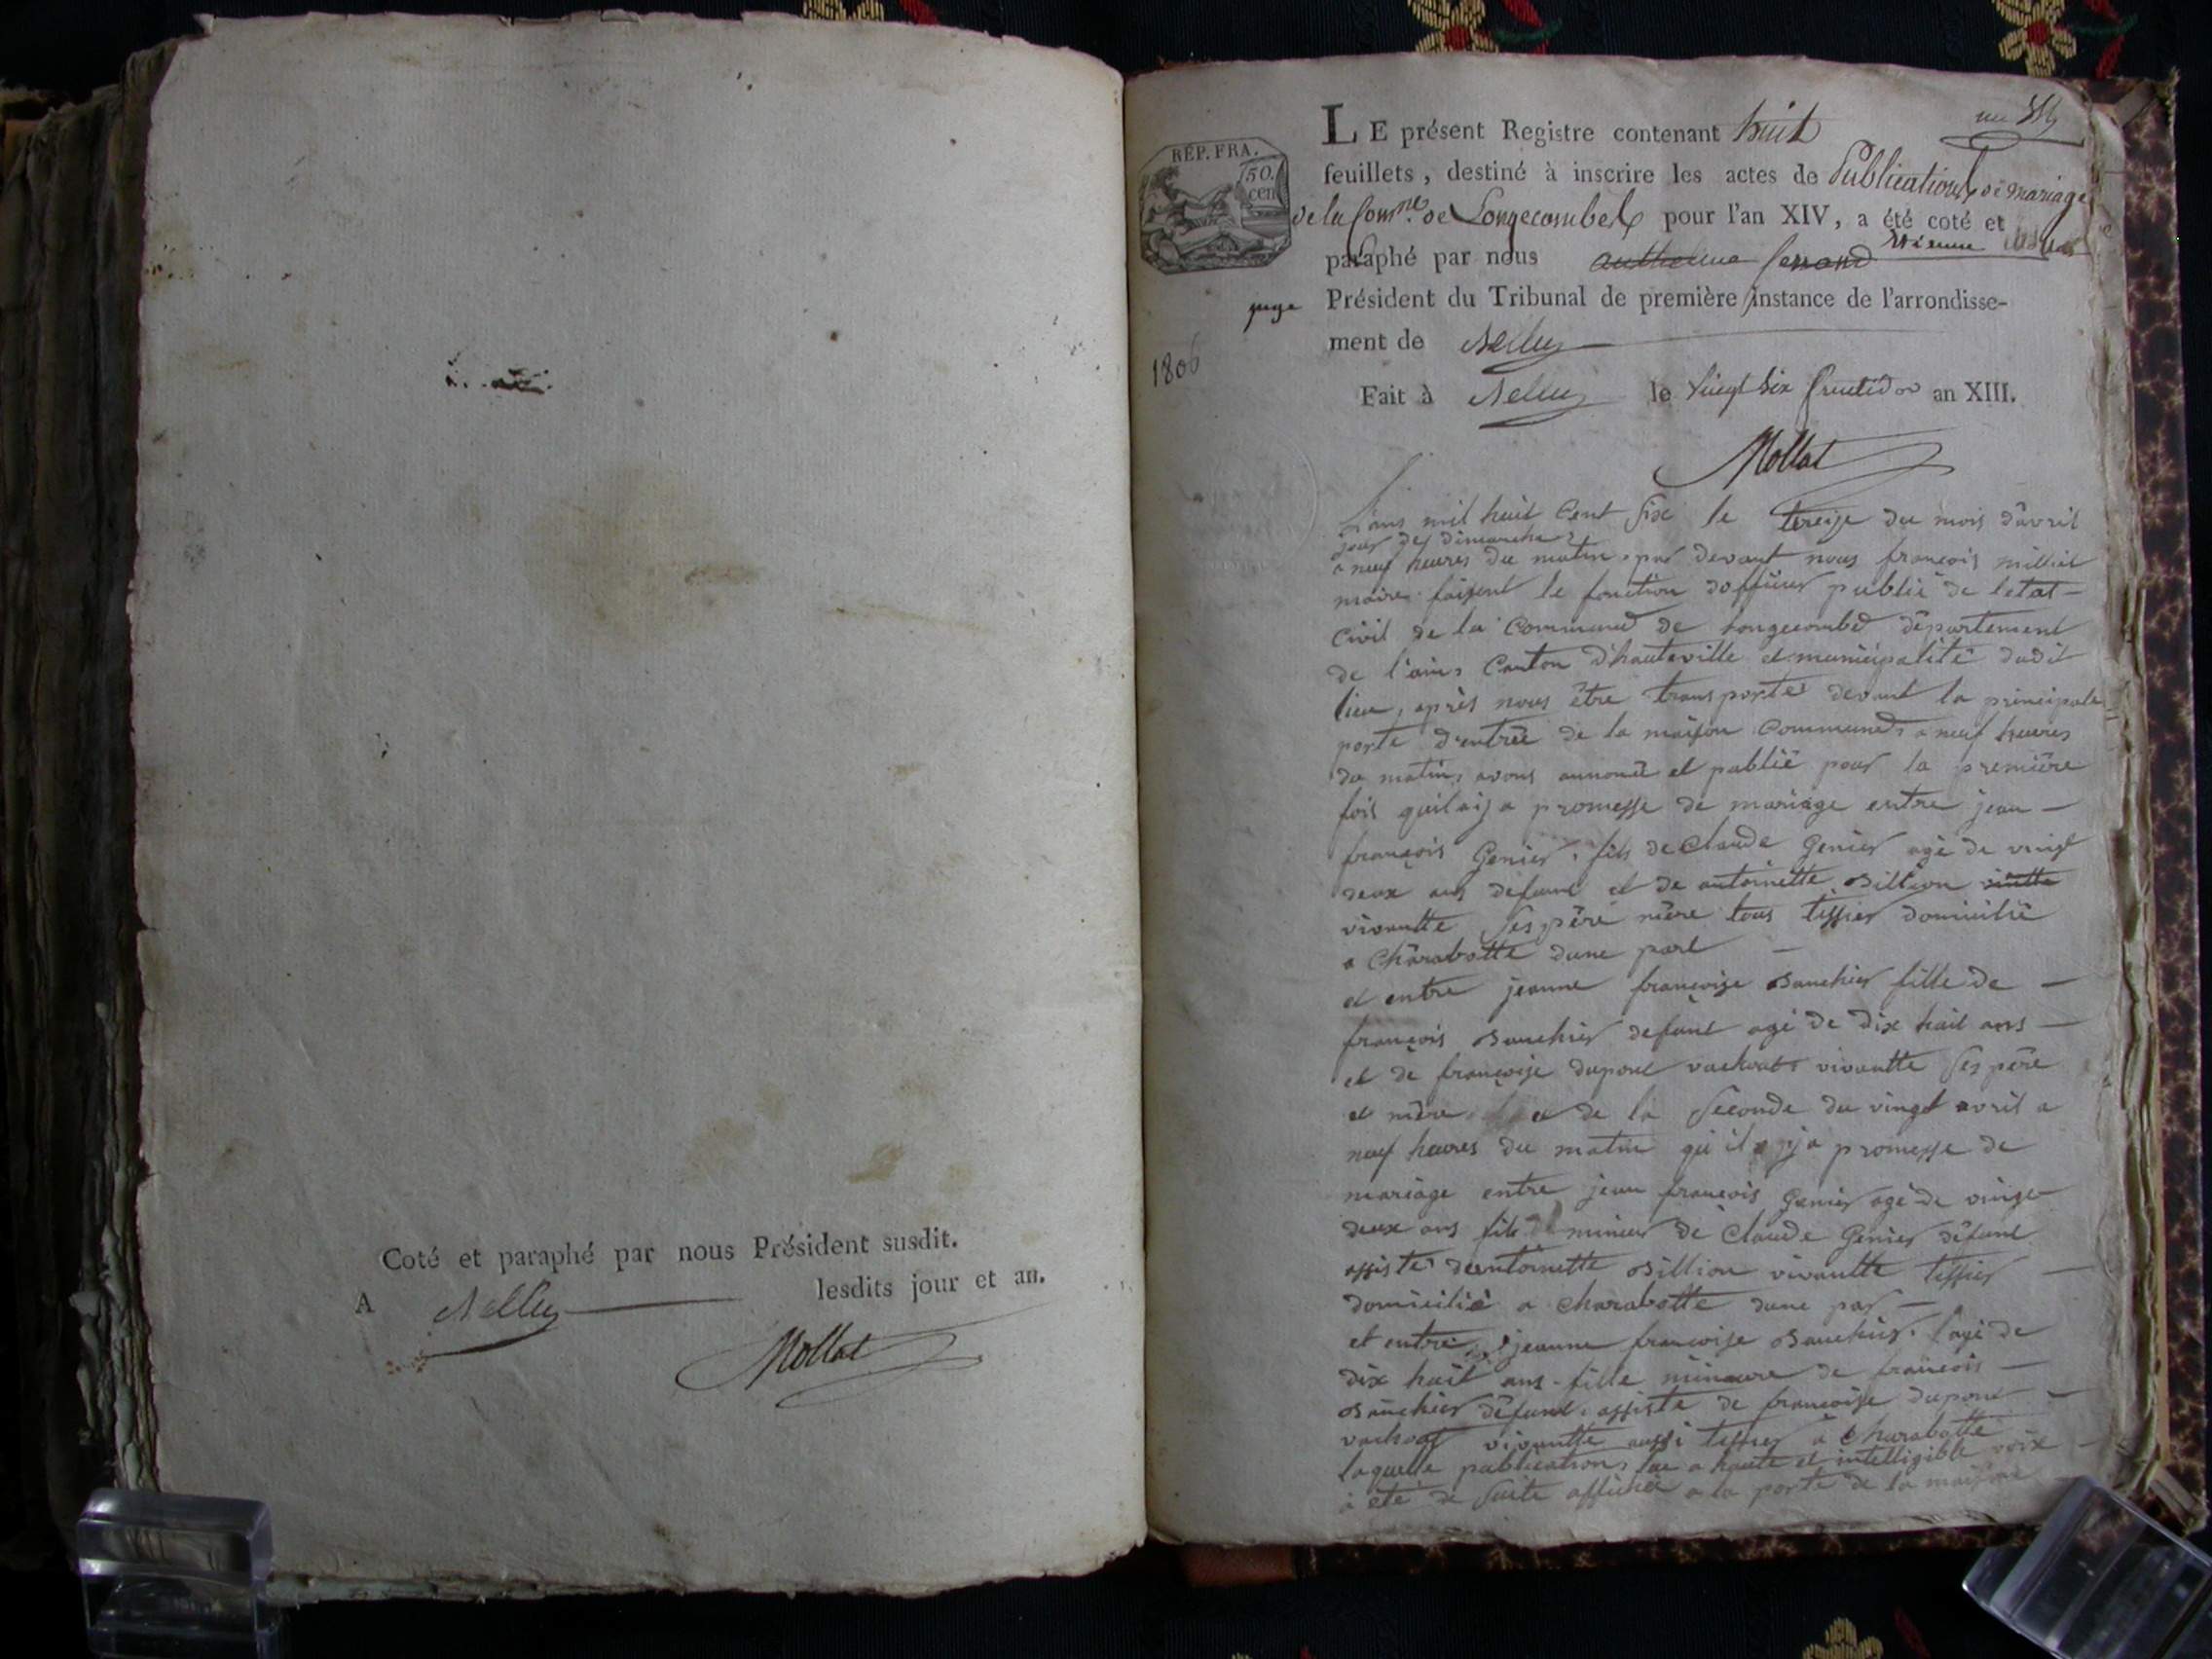 Coté et paraphé par nous Président susdit.
A Belley lesdits jour et an.
Mollat
RÉP. FRA.
50.
cen
LE présent Registre contenant huit
feuillets, destiné à inscrire les actes de Publications de mariage
de la Comne de Longecombe pour l'an XIV, a été coté et
paraphé par nous anthelme ferrand
juge Président du Tribunal de première instance de l'arrondisse-
ment de Belley
1806
Fait à Belley le vingt six fructidor an XIII.
Mollat
L'ans mil huit Cent Six le treize du mois d'avril
jour de dimanche
a neuf heures du matin, par devant nous françois milliet
maire faisent le fonction dofficier public de letat
Civil de la Commune de Longecombe département
de l'ain, Canton d'hauteville et municipalité dudit
lieu, après nous être transporté devant la principale
porte d'entrée de la maison Commune, a neuf heures
du matin, avons annoncé et publié pour la première
fois quil aija promesse de mariage entre jean
françois Genier, fils de Claude Genier agé de vingt
deux ans defunt et de antoinette Billion
vivantte Ses père mère tous tissier domicilié
a Charabotte dune part
et entre jeanne françoise Bauchier fille de
françois Bauchier defunt agé de dix huit ans
et de françoise dupont vachoat vivantte Ses père
et mère et de la Seconde du vingt avril a
neuf heures du matin qu'il y a promesse de
mariage entre jean françois Genier agé de vingt
deux ans fils mineur de Claude Genier défunt
assisté dantoinette Billion vivantte tissier
domicilié a Charabotte dune par
et entre jeanne françoise Bauchier agé de
dix huit ans fille mineure de françois
Bauchier défunt, assiste de françoise dupont
vachoat vivantte aussi tissier à Charabotte
laquelle publication, lue a haute et intelligible voix
à été de Suite affichée a la porte de la maison